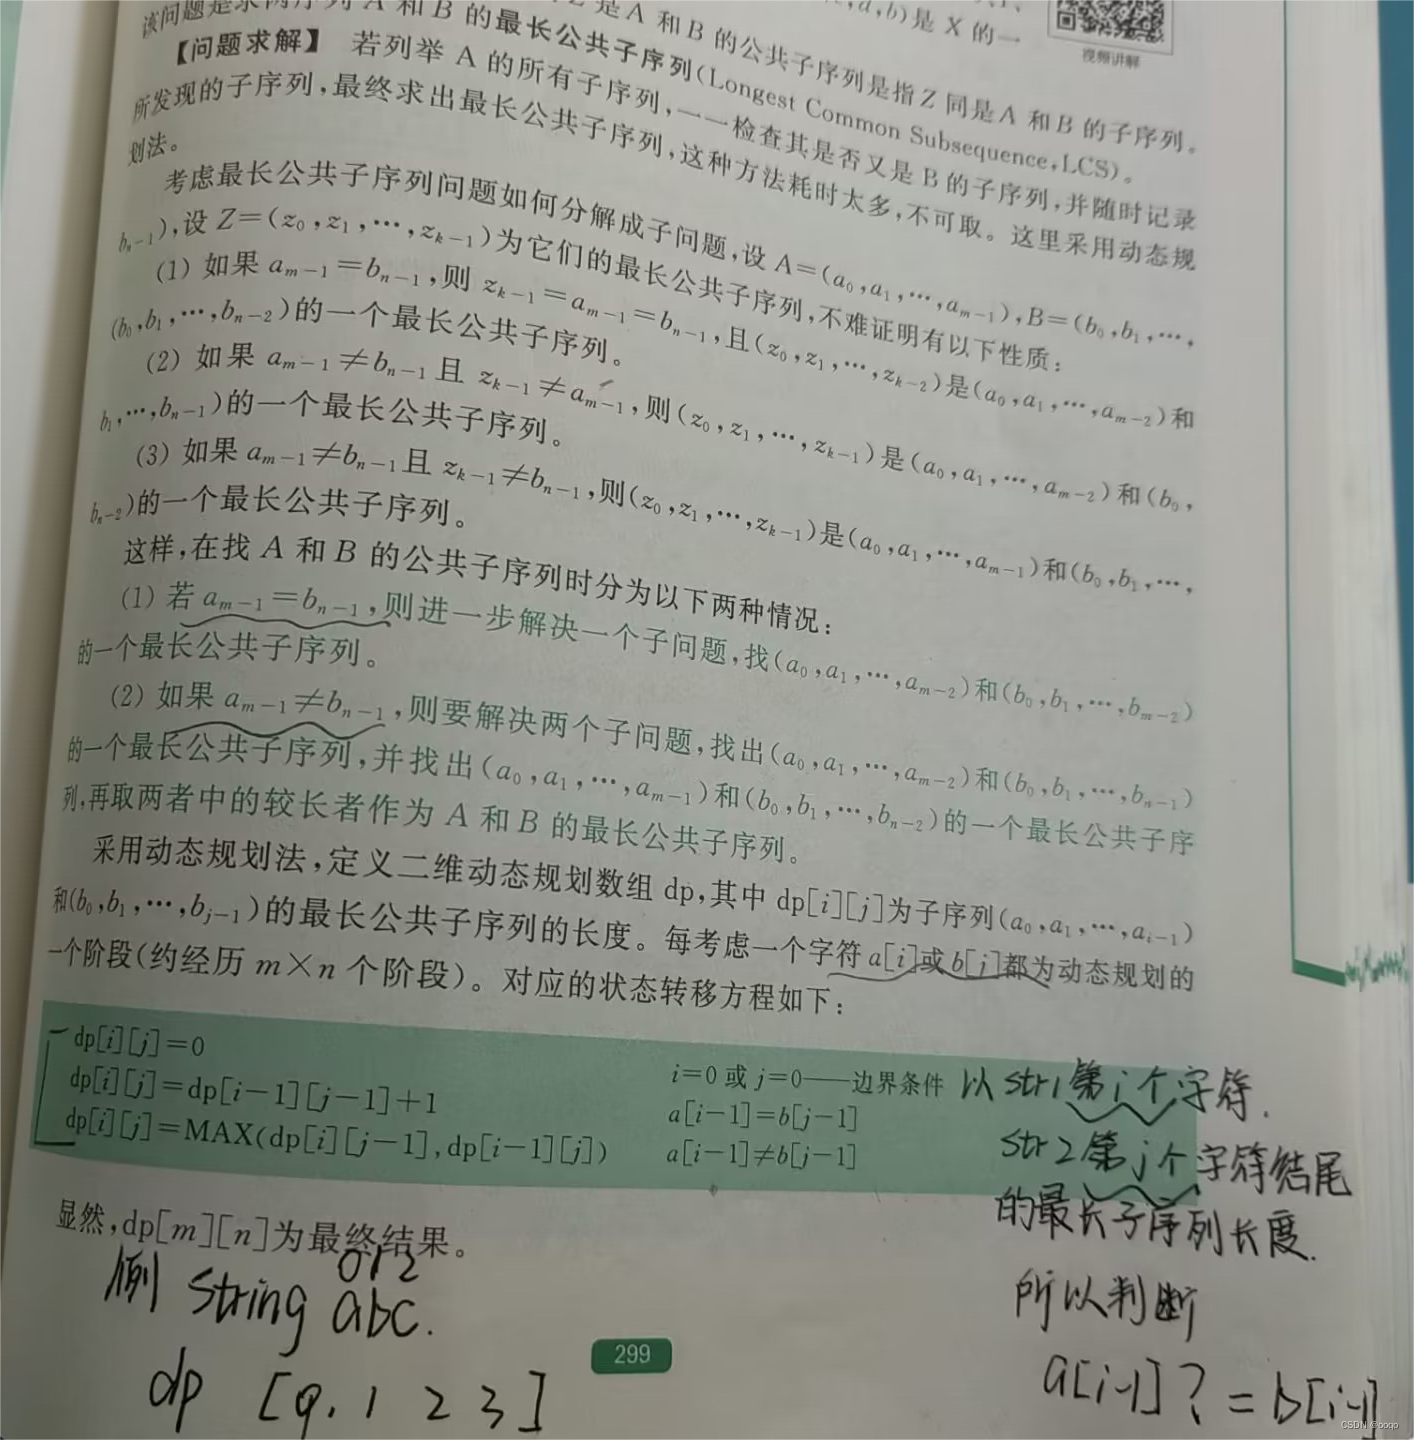 该问题是求两序列 A 和 B 的最长公共子序列(Longest Common Subsequence,LCS)。
是 A 和 B 的公共子序列是指 Z 同是 A 和 B 的子序列。
,d,b)是 X 的一
视频讲解
【问题求解】 若列举 A 的所有子序列,一一检查其是否又是 B 的子序列,并随时记录
所发现的子序列,最终求出最长公共子序列,这种方法耗时太多,不可取。这里采用动态规
划法。
考虑最长公共子序列问题如何分解成子问题,设 A=(a₀,a₁,…,aₘ₋₁),B=(b₀,b₁,…,
bₙ₋₁),设 Z=(z₀,z₁,…,zₖ₋₁)为它们的最长公共子序列,不难证明有以下性质:
(1) 如果 aₘ₋₁=bₙ₋₁,则 zₖ₋₁=aₘ₋₁=bₙ₋₁,且(z₀,z₁,…,zₖ₋₂)是(a₀,a₁,…,aₘ₋₂)和
(b₀,b₁,…,bₙ₋₂)的一个最长公共子序列。
(2) 如果 aₘ₋₁≠bₙ₋₁且 zₖ₋₁≠aₘ₋₁,则(z₀,z₁,…,zₖ₋₁)是(a₀,a₁,…,aₘ₋₂)和(b₀,
b₁,…,bₙ₋₁)的一个最长公共子序列。
(3) 如果 aₘ₋₁≠bₙ₋₁且 zₖ₋₁≠bₙ₋₁,则(z₀,z₁,…,zₖ₋₁)是(a₀,a₁,…,aₘ₋₁)和(b₀,b₁,…,
bₙ₋₂)的一个最长公共子序列。
这样,在找 A 和 B 的公共子序列时分为以下两种情况:
(1) 若 aₘ₋₁=bₙ₋₁,则进一步解决一个子问题,找(a₀,a₁,…,aₘ₋₂)和(b₀,b₁,…,bₘ₋₂)
的一个最长公共子序列。
(2) 如果 aₘ₋₁≠bₙ₋₁,则要解决两个子问题,找出(a₀,a₁,…,aₘ₋₂)和(b₀,b₁,…,bₙ₋₁)
的一个最长公共子序列,并找出(a₀,a₁,…,aₘ₋₁)和(b₀,b₁,…,bₙ₋₂)的一个最长公共子序
列,再取两者中的较长者作为 A 和 B 的最长公共子序列。
采用动态规划法,定义二维动态规划数组 dp,其中 dp[i][j]为子序列(a₀,a₁,…,aᵢ₋₁)
和(b₀,b₁,…,bⱼ₋₁)的最长公共子序列的长度。每考虑一个字符 a[i]或 b[j]都为动态规划的
一个阶段(约经历 m×n 个阶段)。对应的状态转移方程如下:
dp[i][j]=0 i=0 或 j=0——边界条件
dp[i][j]=dp[i-1][j-1]+1 a[i-1]=b[j-1]
dp[i][j]=MAX(dp[i][j-1],dp[i-1][j]) a[i-1]≠b[j-1]
以 str1第i个字符.
str2第j个字符结尾
的最长子序列长度.
所以判断
a[i-1]?=b[i-1]
显然,dp[m][n]为最终结果。
012
例 string abc.
dp [0, 1 2 3]
299
CSDN @ooqp